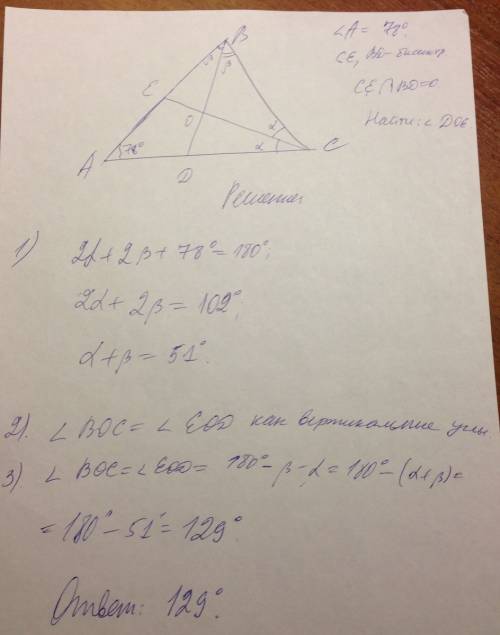 ∠A = 78°
CE, BD – биссектр
CE ∩ BD = O
Найти: ∠ DOE
B
β β
E
O
α
α
A
78°
D
C
Решение
1) 2α + 2β + 78° = 180°;
2α + 2β = 102°;
α + β = 51°.
2). ∠ BOC = ∠ EOD как вертикальные углы
3) ∠ BOC = ∠ EOD = 180° – β – α = 180° – (α + β) =
= 180° – 51° = 129°.
Ответ: 129°.